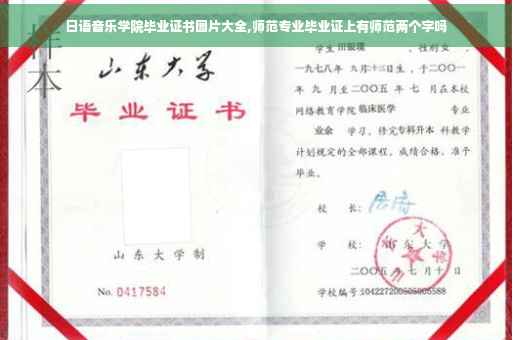 日语音乐学院毕业证书图片大全,师范专业毕业证上有师范两个字吗
样本
山东大学
毕业证书
山东大学制
No. 0417584
学生 田银瑞 ,性别女,
一九七八年 九月十二日生,于二〇〇一
年 九 月至二〇〇五 年 七 月在本校
网络教育学院 临床医学 专业
业余 学习,修完专科升本 科教学
计划规定的全部课程,成绩合格,准予
毕业。
校 长:
学 校: 山东大学
二〇〇五 年 七 月 十 日
学校编号: